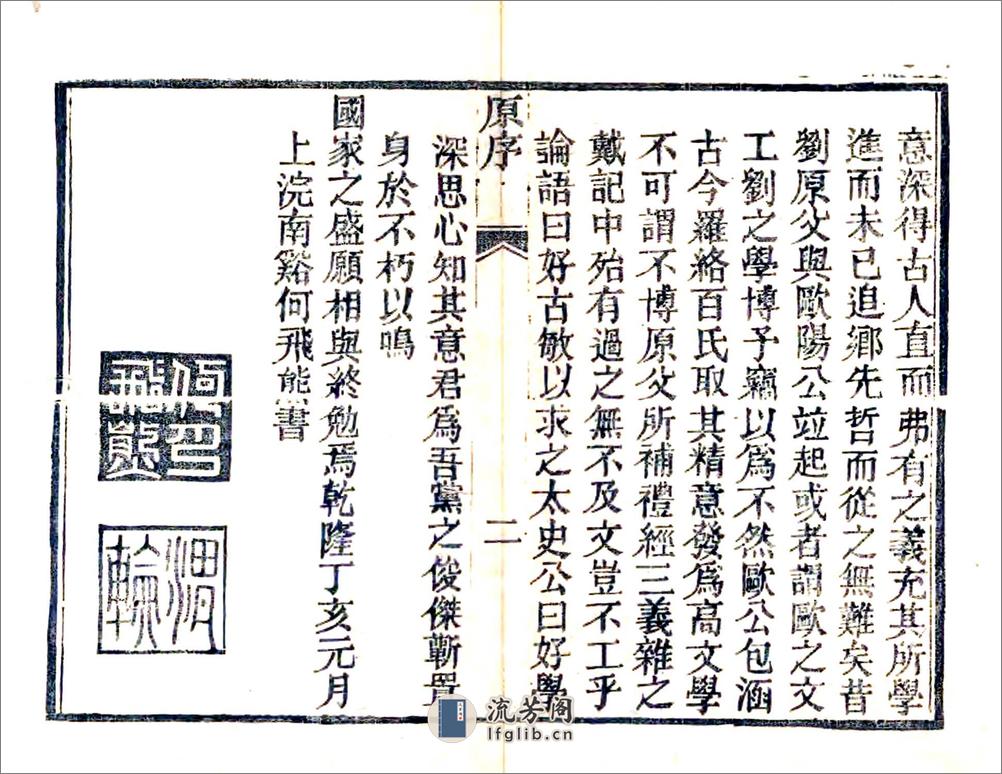 意深得古人直而弗有之義充其所學
進而未已追鄉先哲而從之無難矣昔
劉原父與歐陽公竝起或者謂歐之文
工劉之學博予竊以爲不然歐公包涵
古今羅絡百氏取其精意發爲高文學
不可謂不博原父所補禮經三義雜之
戴記中殆有過之無不及文豈不工乎
論語曰好古敏以求之太史公曰好學
原序
二
深思心知其意君爲吾黨之俊傑蘄置
身於不朽以鳴
國家之盛願相與終勉焉乾隆丁亥元月
上浣南谿何飛熊書
何飛熊印
渭輪
流芳阁
lfglib.cn